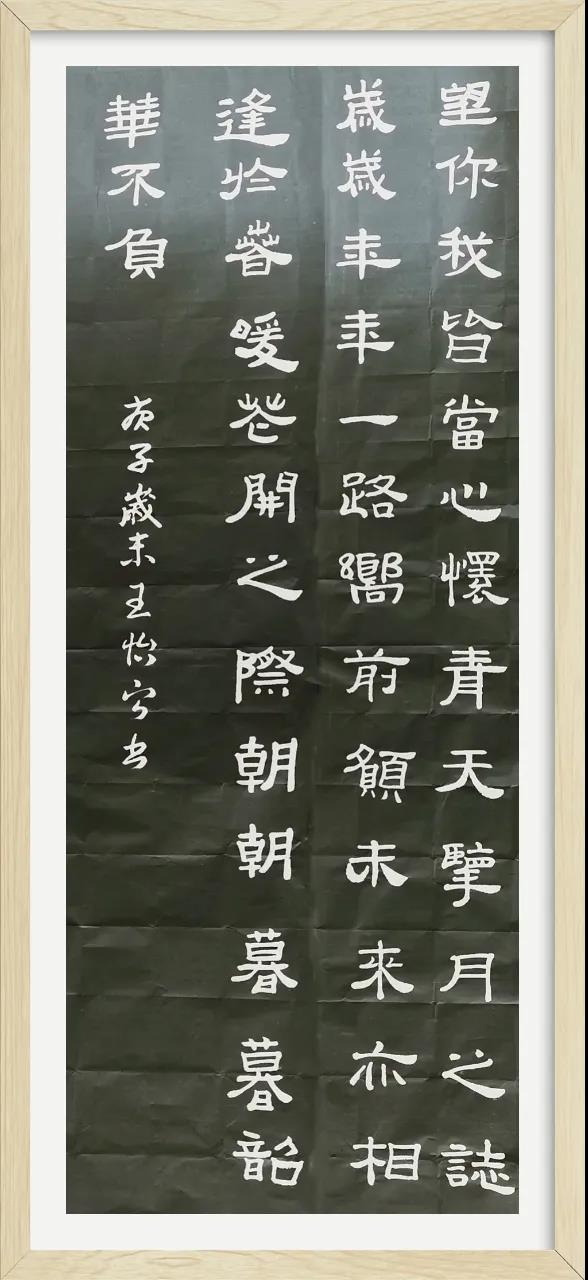 望你我皆當心懷青天擎月之誌
歲歲年年一路嚮前願未來亦相
逢於春暖花開之際朝朝暮暮韶
華不負
庚子歲末王怡宁书